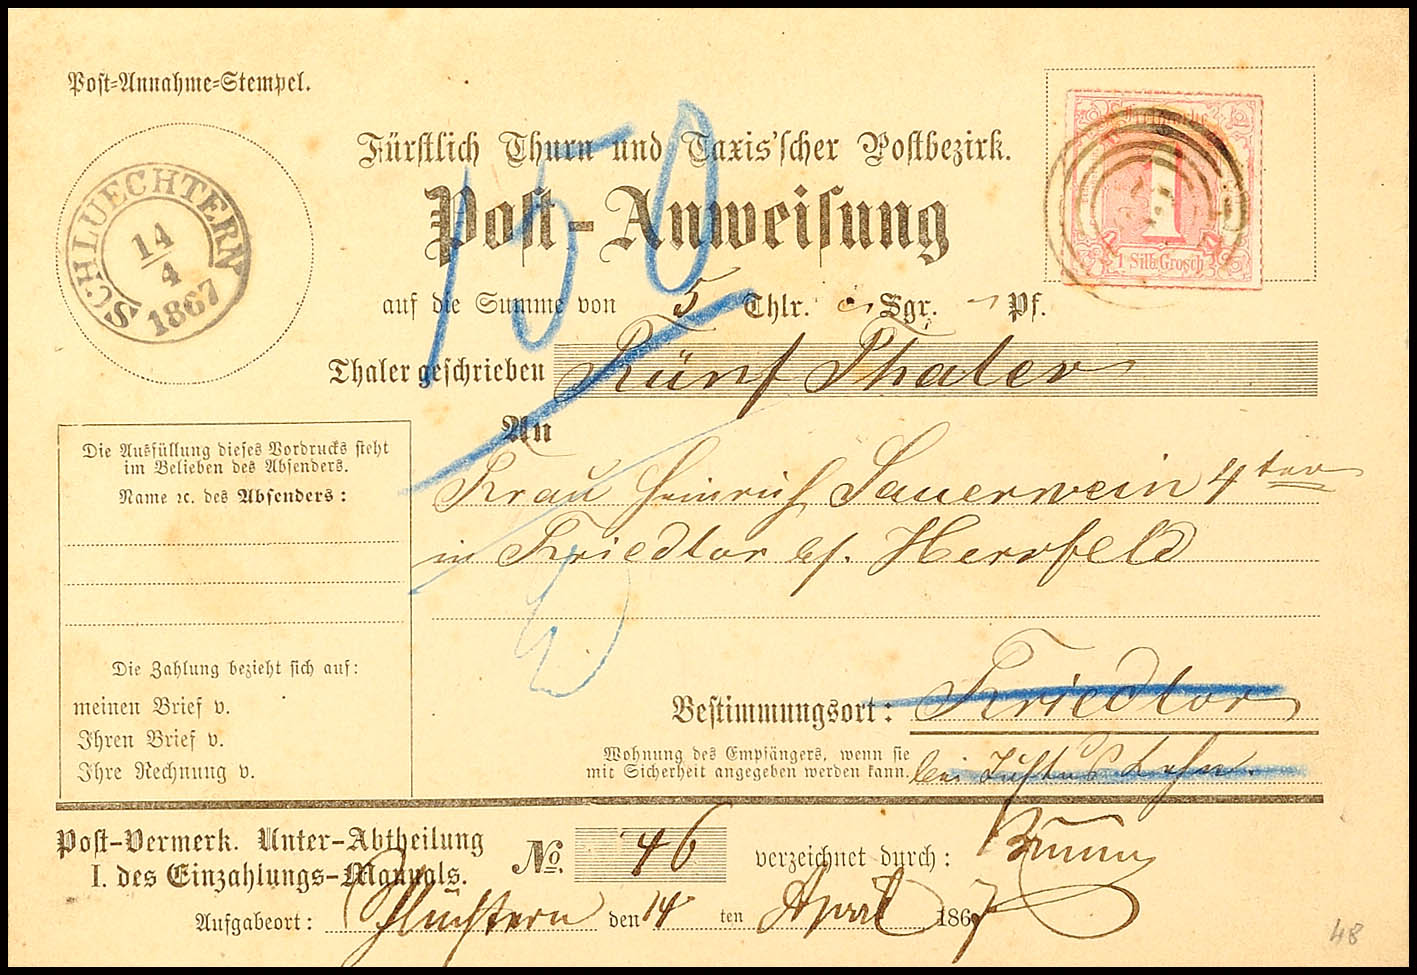 Post-Annahme-Stempel.
SCHLUECHTERN
14
4
1867
Fürstlich Thurn und Taxis'scher Postbezirk.
Post-Anweisung
150
1 Silb. Grosch
auf die Summe von 5 Thlr. Sgr. Pf.
Thaler geschrieben Fünf Thaler
An
Frau Heinrich Sauerwein 4ter
in Friedlos b/. Hersfeld
Die Ausfüllung dieses Vordrucks steht
im Belieben des Absenders.
Name ꝛc. des Absenders:
Die Zahlung bezieht sich auf:
meinen Brief v.
Ihren Brief v.
Ihre Rechnung v.
Bestimmungsort: Friedlos
Wohnung des Empfängers, wenn sie
mit Sicherheit angegeben werden kann. bei Justus
Post-Vermerk. Unter-Abtheilung
I. des Einzahlungs-Manuals.
No. 46 verzeichnet durch:
Aufgabeort: Schlüchtern den 14 ten April 1867
48